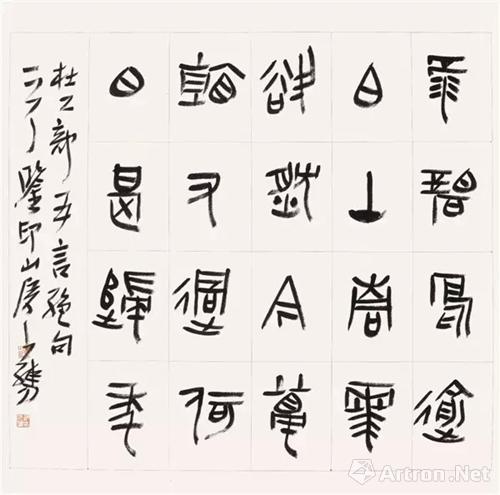 江碧鳥逾
白山青花
欲然今春
看又過何
日是歸年
杜工部五言絕句
鑒印山房
Artron.Net